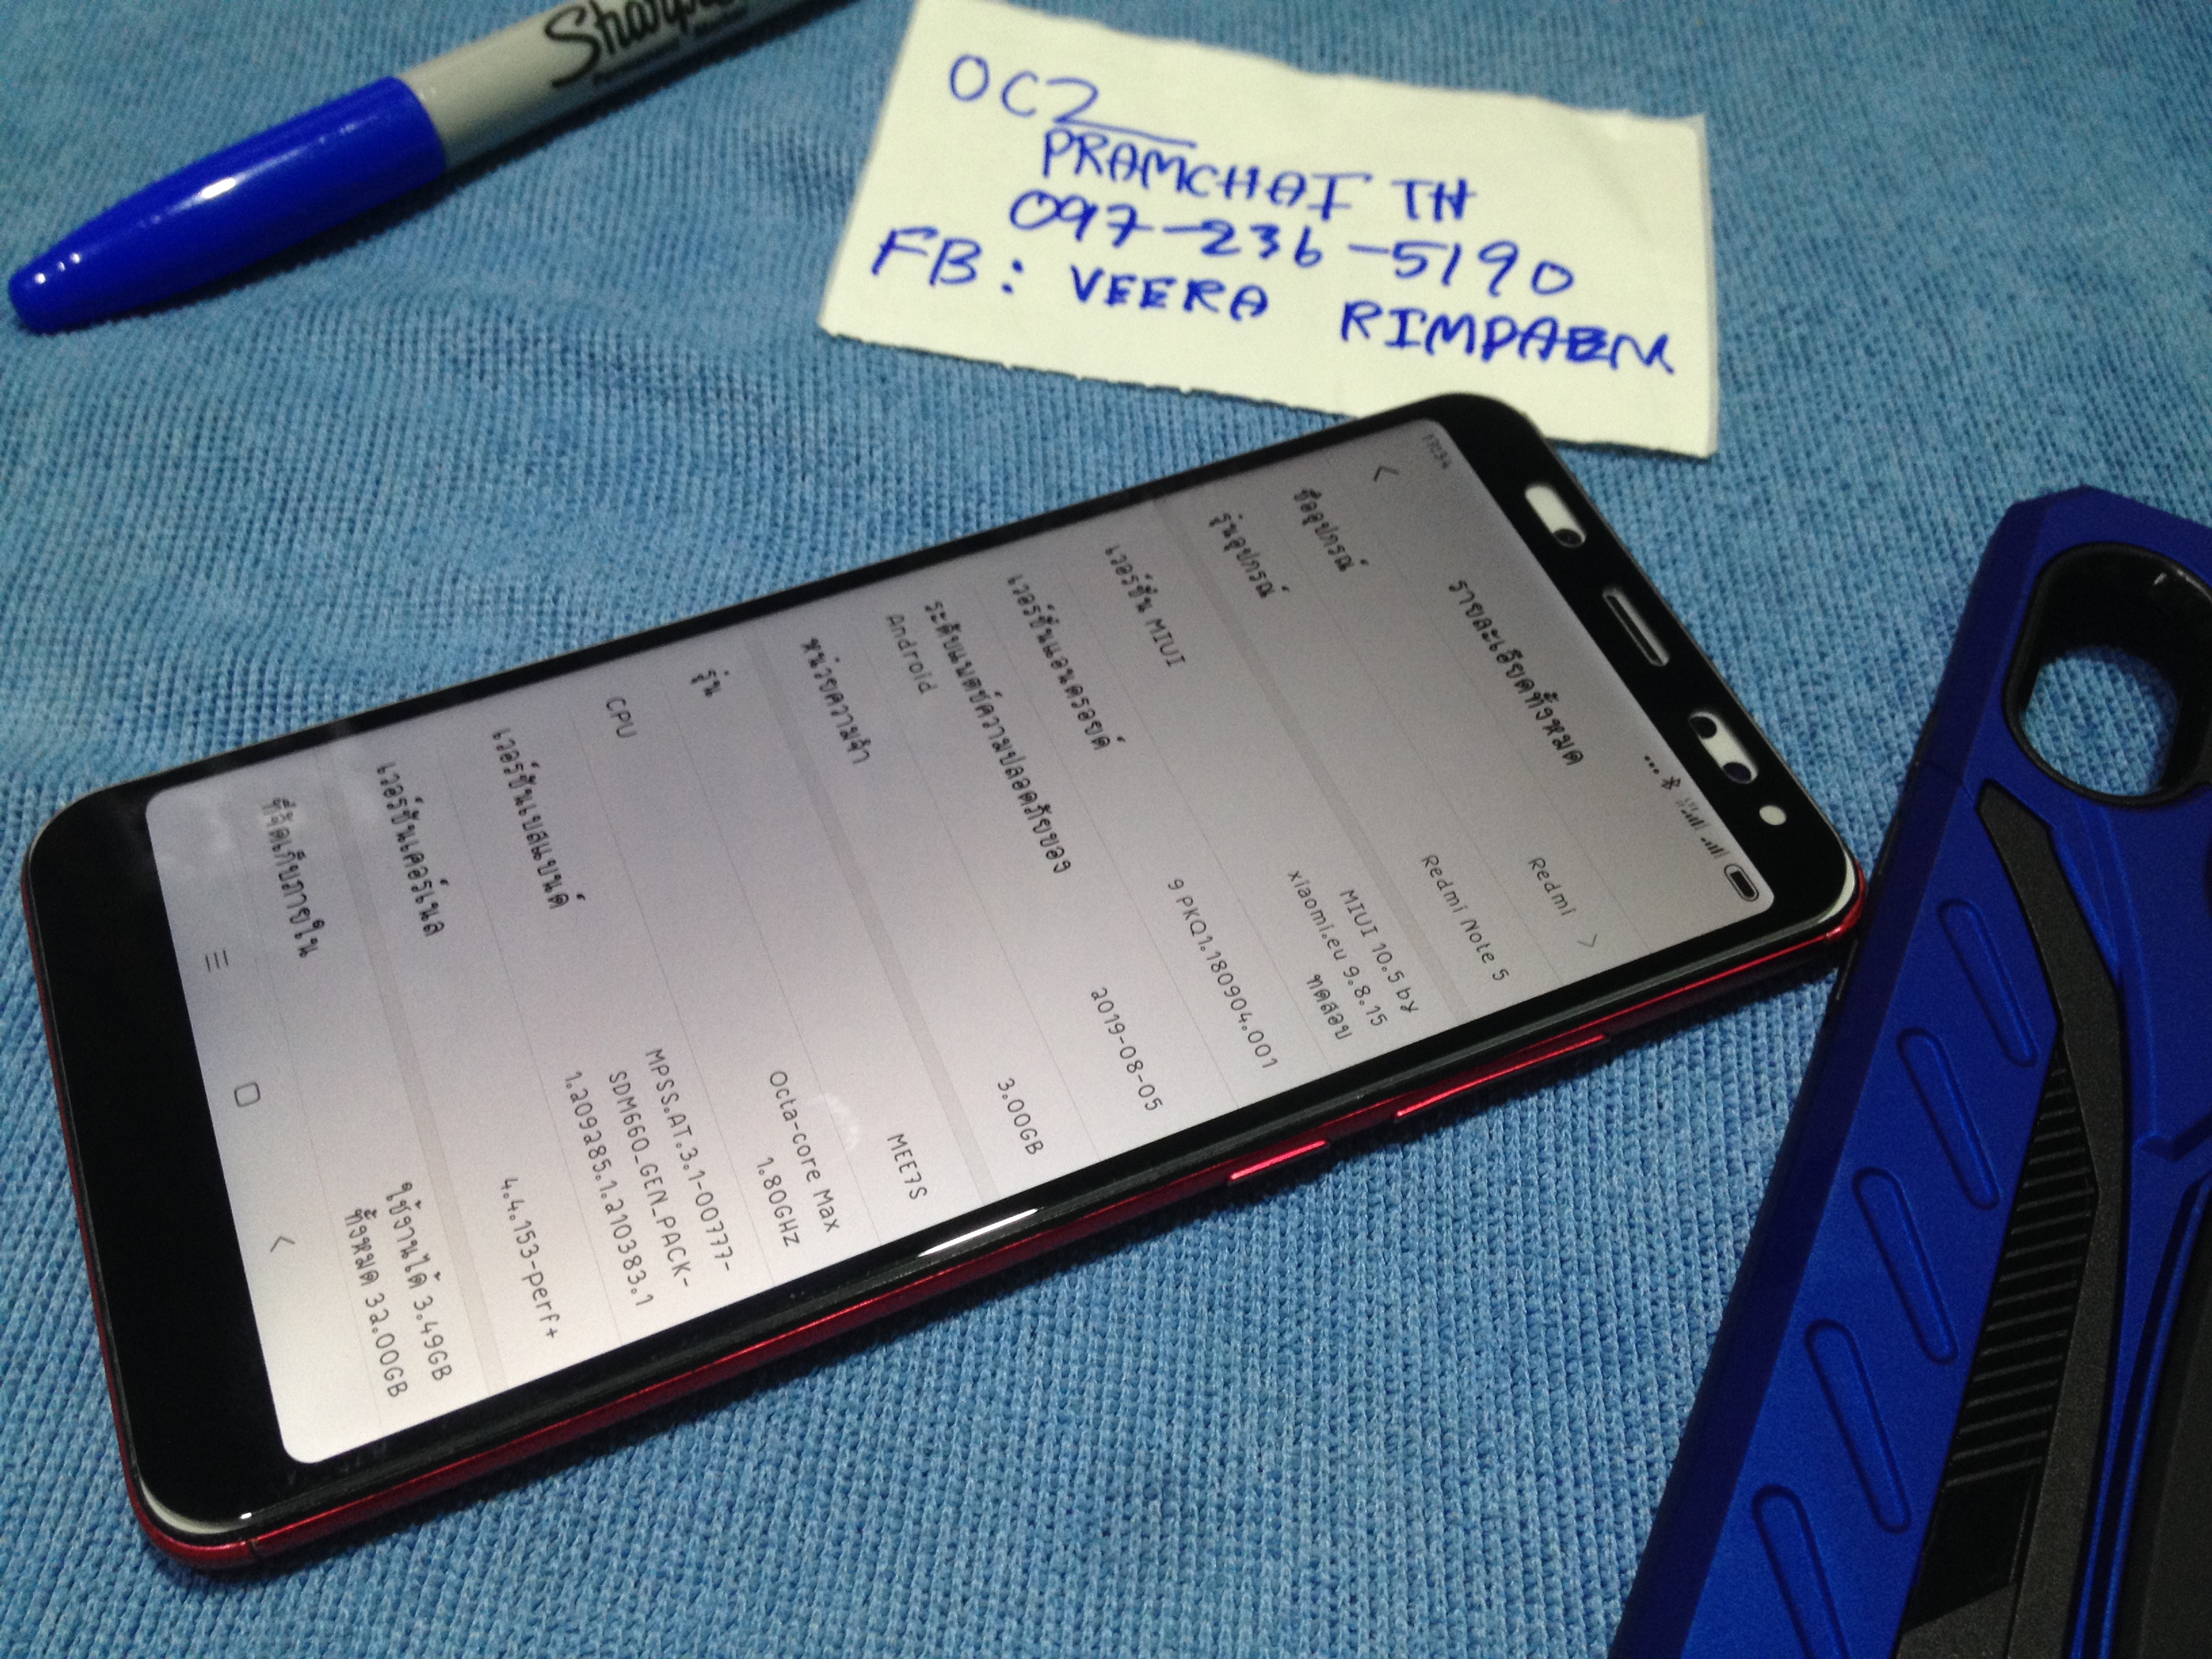 Sharpie
OCZ
PRAMCHAI TH
097-236-5190
FB: VEERA RIMPAEM
17:34
รายละเอียดทั้งหมด
ชื่ออุปกรณ์ Redmi
รุ่นอุปกรณ์ Redmi Note 5
เวอร์ชั่น MIUI MIUI 10.5 by
xiaomi.eu 9.8.15
ทดสอบ
เวอร์ชั่นแอนดรอยด์ 9 PKQ1.180904.001
ระดับแพตช์ความปลอดภัยของ
Android 2019-08-05
หน่วยความจำ 3.00GB
รุ่น MEE7S
CPU Octa-core Max
1.80GHz
เวอร์ชั่นเบสแบนด์ MPSS.AT.3.1-00777-
SDM660_GEN_PACK-
1.209285.1.210383.1
เวอร์ชั่นเคอร์เนล 4.4.153-perf+
ที่จัดเก็บภายใน ใช้งานได้ 3.49GB
ทั้งหมด 32.00GB